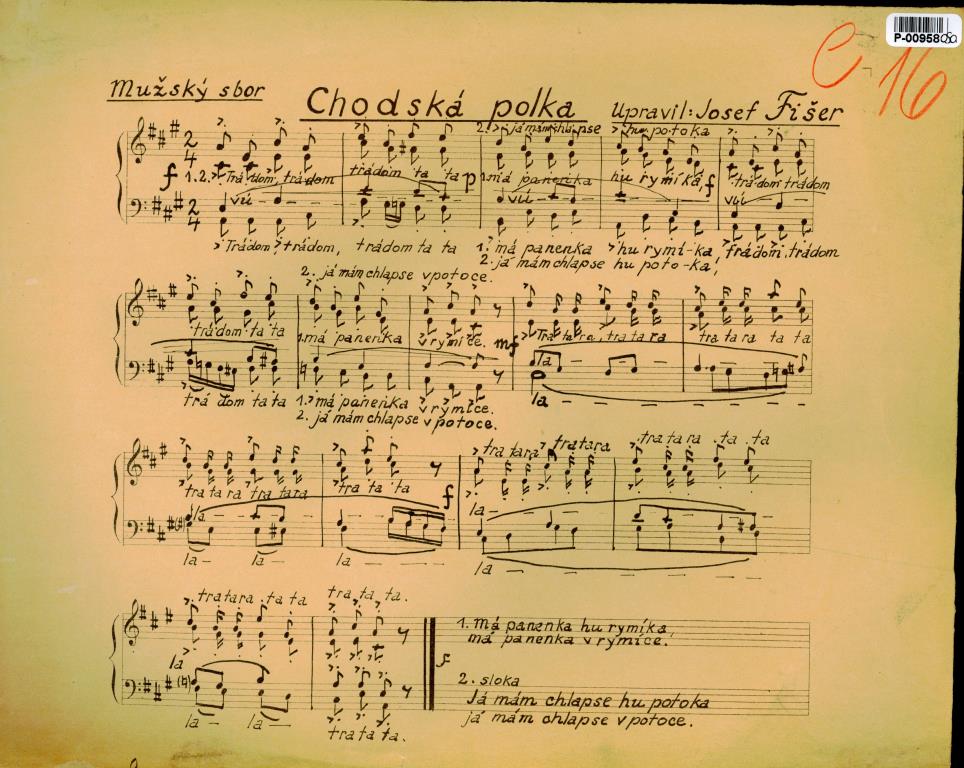 P-00958080
C 16
Mužský sbor
Chodská polka
Upravil: Josef Fišer
2. já mám chlapse hu potoka
f 1.2. Trá dom, trá dom trádom ta ta p 1. má panenka hu rymíká, f trádom trádom
vú vú vú
Trádom, trádom, trádom ta ta 1. má panenka hu rymí-ka, trádom, trádom
2. já mám chlapse hu poto-ka,
2. já mám chlapse v potoce.
trádom ta ta 1. má panenka v rymíce. mf Tra ta ra, tra ta ra tra ta ra ta ta
la
trá dom ta ta 1. má panenka v rymíce. la
2. já mám chlapse v potoce.
tra tara tratara ta ta
tra ta ra tra tara tra ta ta f la
la
la la la la
tratara ta ta tra ta ta.
la
la la tra ta ta.
1. Má panenka hu rymíka,
má panenka v rymíce.
2. sloka
Já mám chlapse hu potoka
já mám chlapse v potoce.